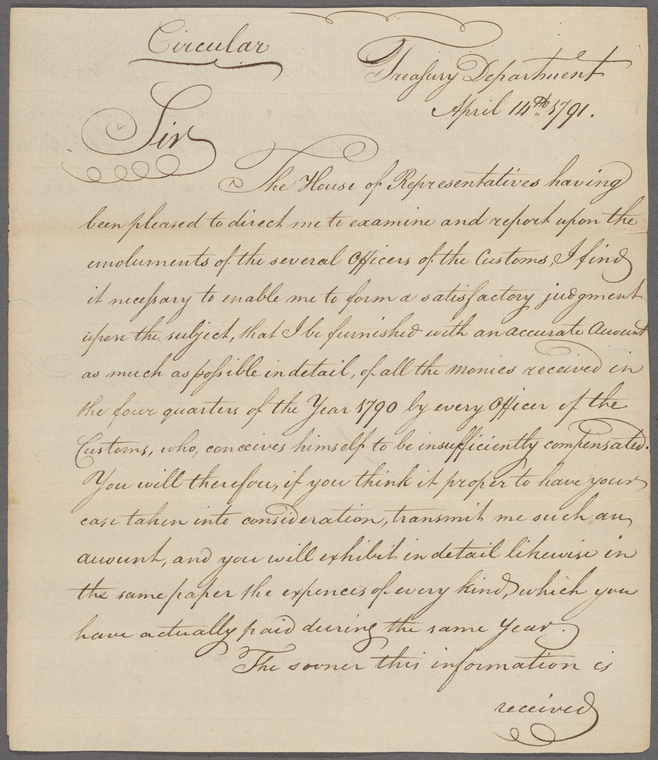 Circular
Treasury Department
April 14th 1791.
Sir
The House of Representatives having
been pleased to direct me to examine and report upon the
emoluments of the several Officers of the Customs, I find
it necessary to enable me to form a satisfactory judgment
upon the subject, that I be furnished with an accurate Account
as much as possible in detail, of all the monies received in
the four quarters of the Year 1790 by every Officer of the
Customs, who, conceives himself to be insufficiently compensated.
You will therefore, if you think it proper to have your
case taken into consideration, transmit me such an
account, and you will exhibit in detail likewise in
the same paper the expences of every kind, which you
have actually paid during the same Year.
The sooner this information is
received